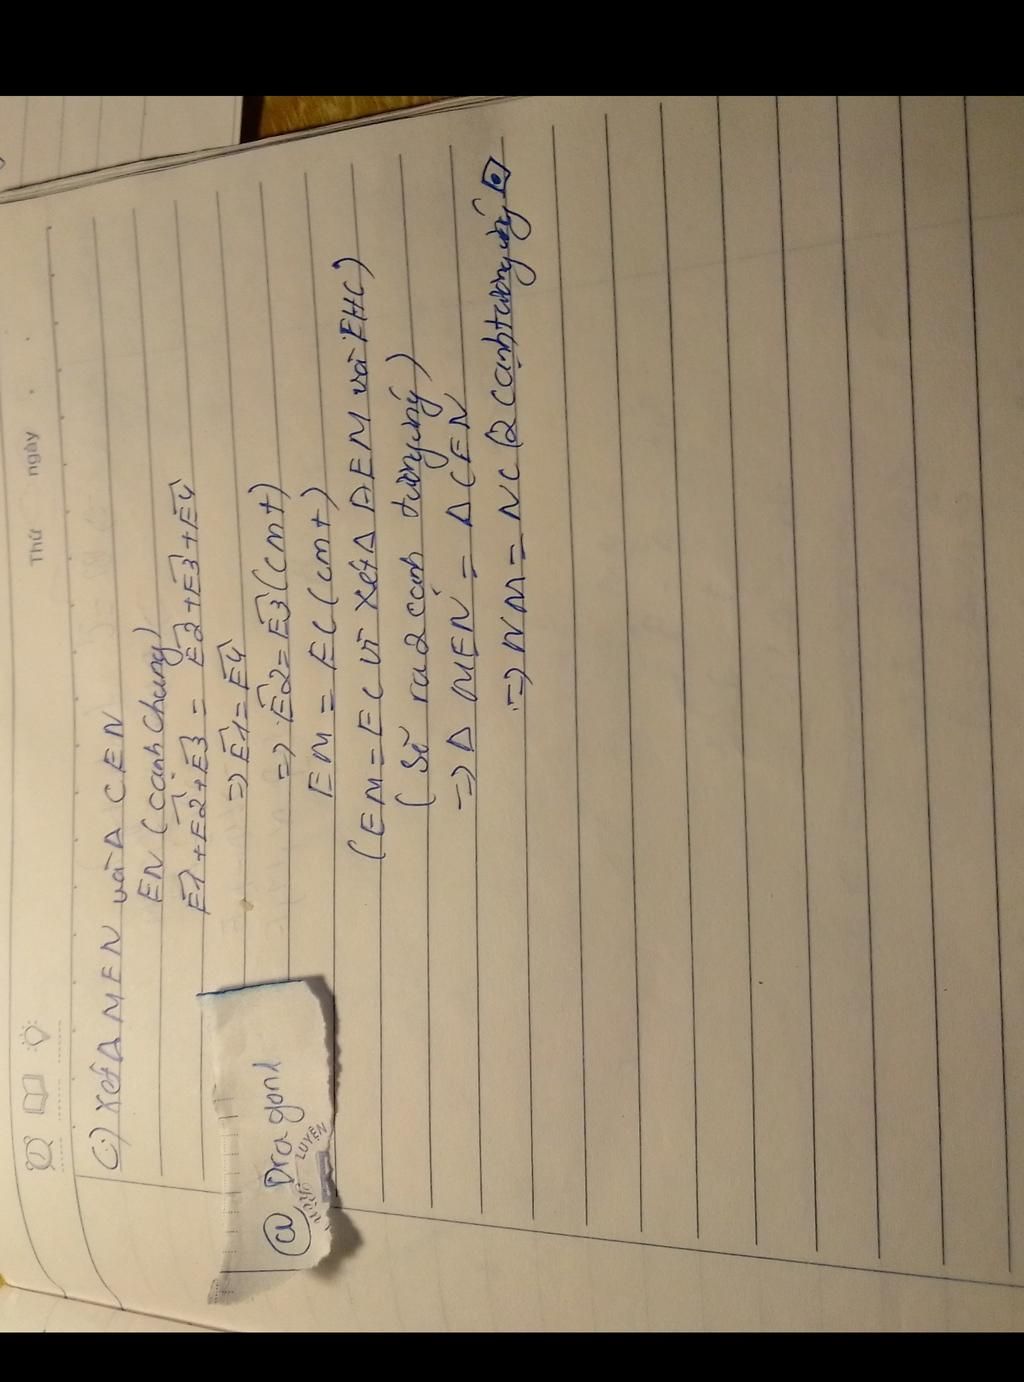 Thứ ngày
c) Xét Δ MEN và Δ CEN
EN (cạnh chung)
Ê1 + Ê2 + Ê3 = Ê2 + Ê3 + Ê4
=) Ê1 = Ê4
=) Ê2 = Ê3 (cmt)
EM = EC (cmt)
(EM = EC vì xét Δ AEM và EHC)
(Sẽ ra 2 cạnh tương ứng)
=) Δ MEN = Δ CEN
=) NM = NC (2 cạnh tương ứng)
@ Dragon
LUYỆN